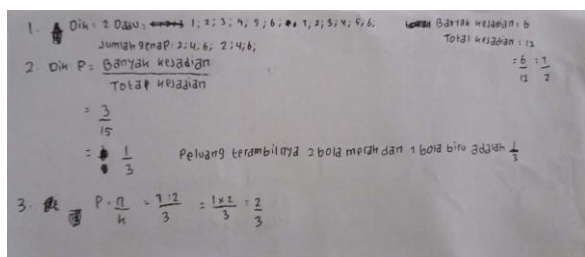 1. Dik = 2 Dadu : 1; 2; 3; 4; 5; 6; 1; 2; 3; 4; 5; 6;
Banyak kejadian: 6
Jumlah genap: 2; 4; 6; 2; 4; 6;
Total kejadian: 12
= 6/12 = 1/2
2. Dik P = Banyak kejadian / Total kejadian
= 3/15
= 1/3 Peluang terambilnya 2 bola merah dan 1 bola biru adalah 1/3
3. P = n/k = 1:2/3 = 1x2/3 = 2/3